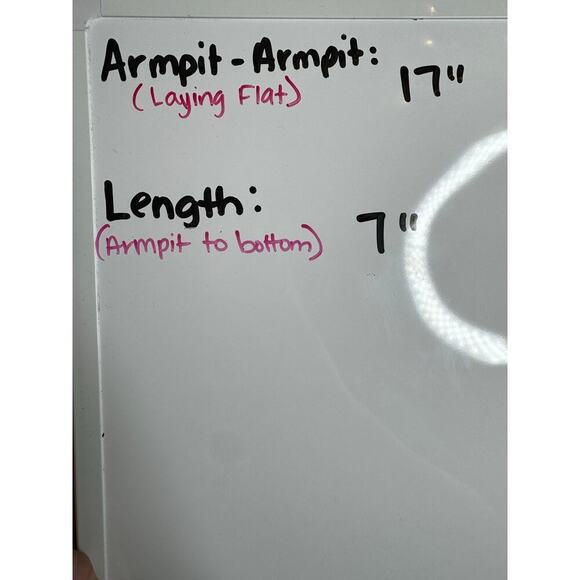 Armpit - Armpit: 17"
(Laying Flat)
Length: 7"
(Armpit to bottom)